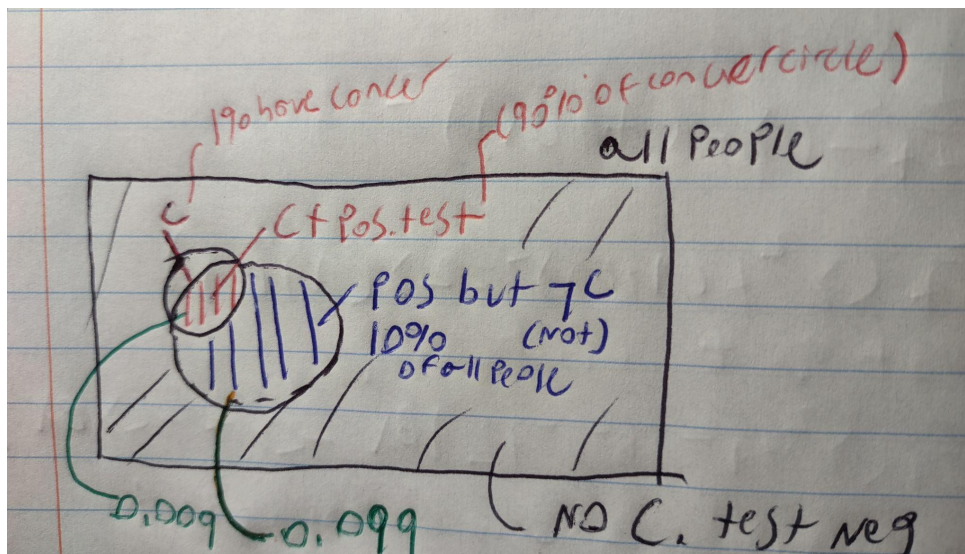 1% have cancer
(90% of cancer circle)
all people
C
C + pos. test
pos but ¬C
10% (Not)
of all people
0.009
0.099
NO C. test neg